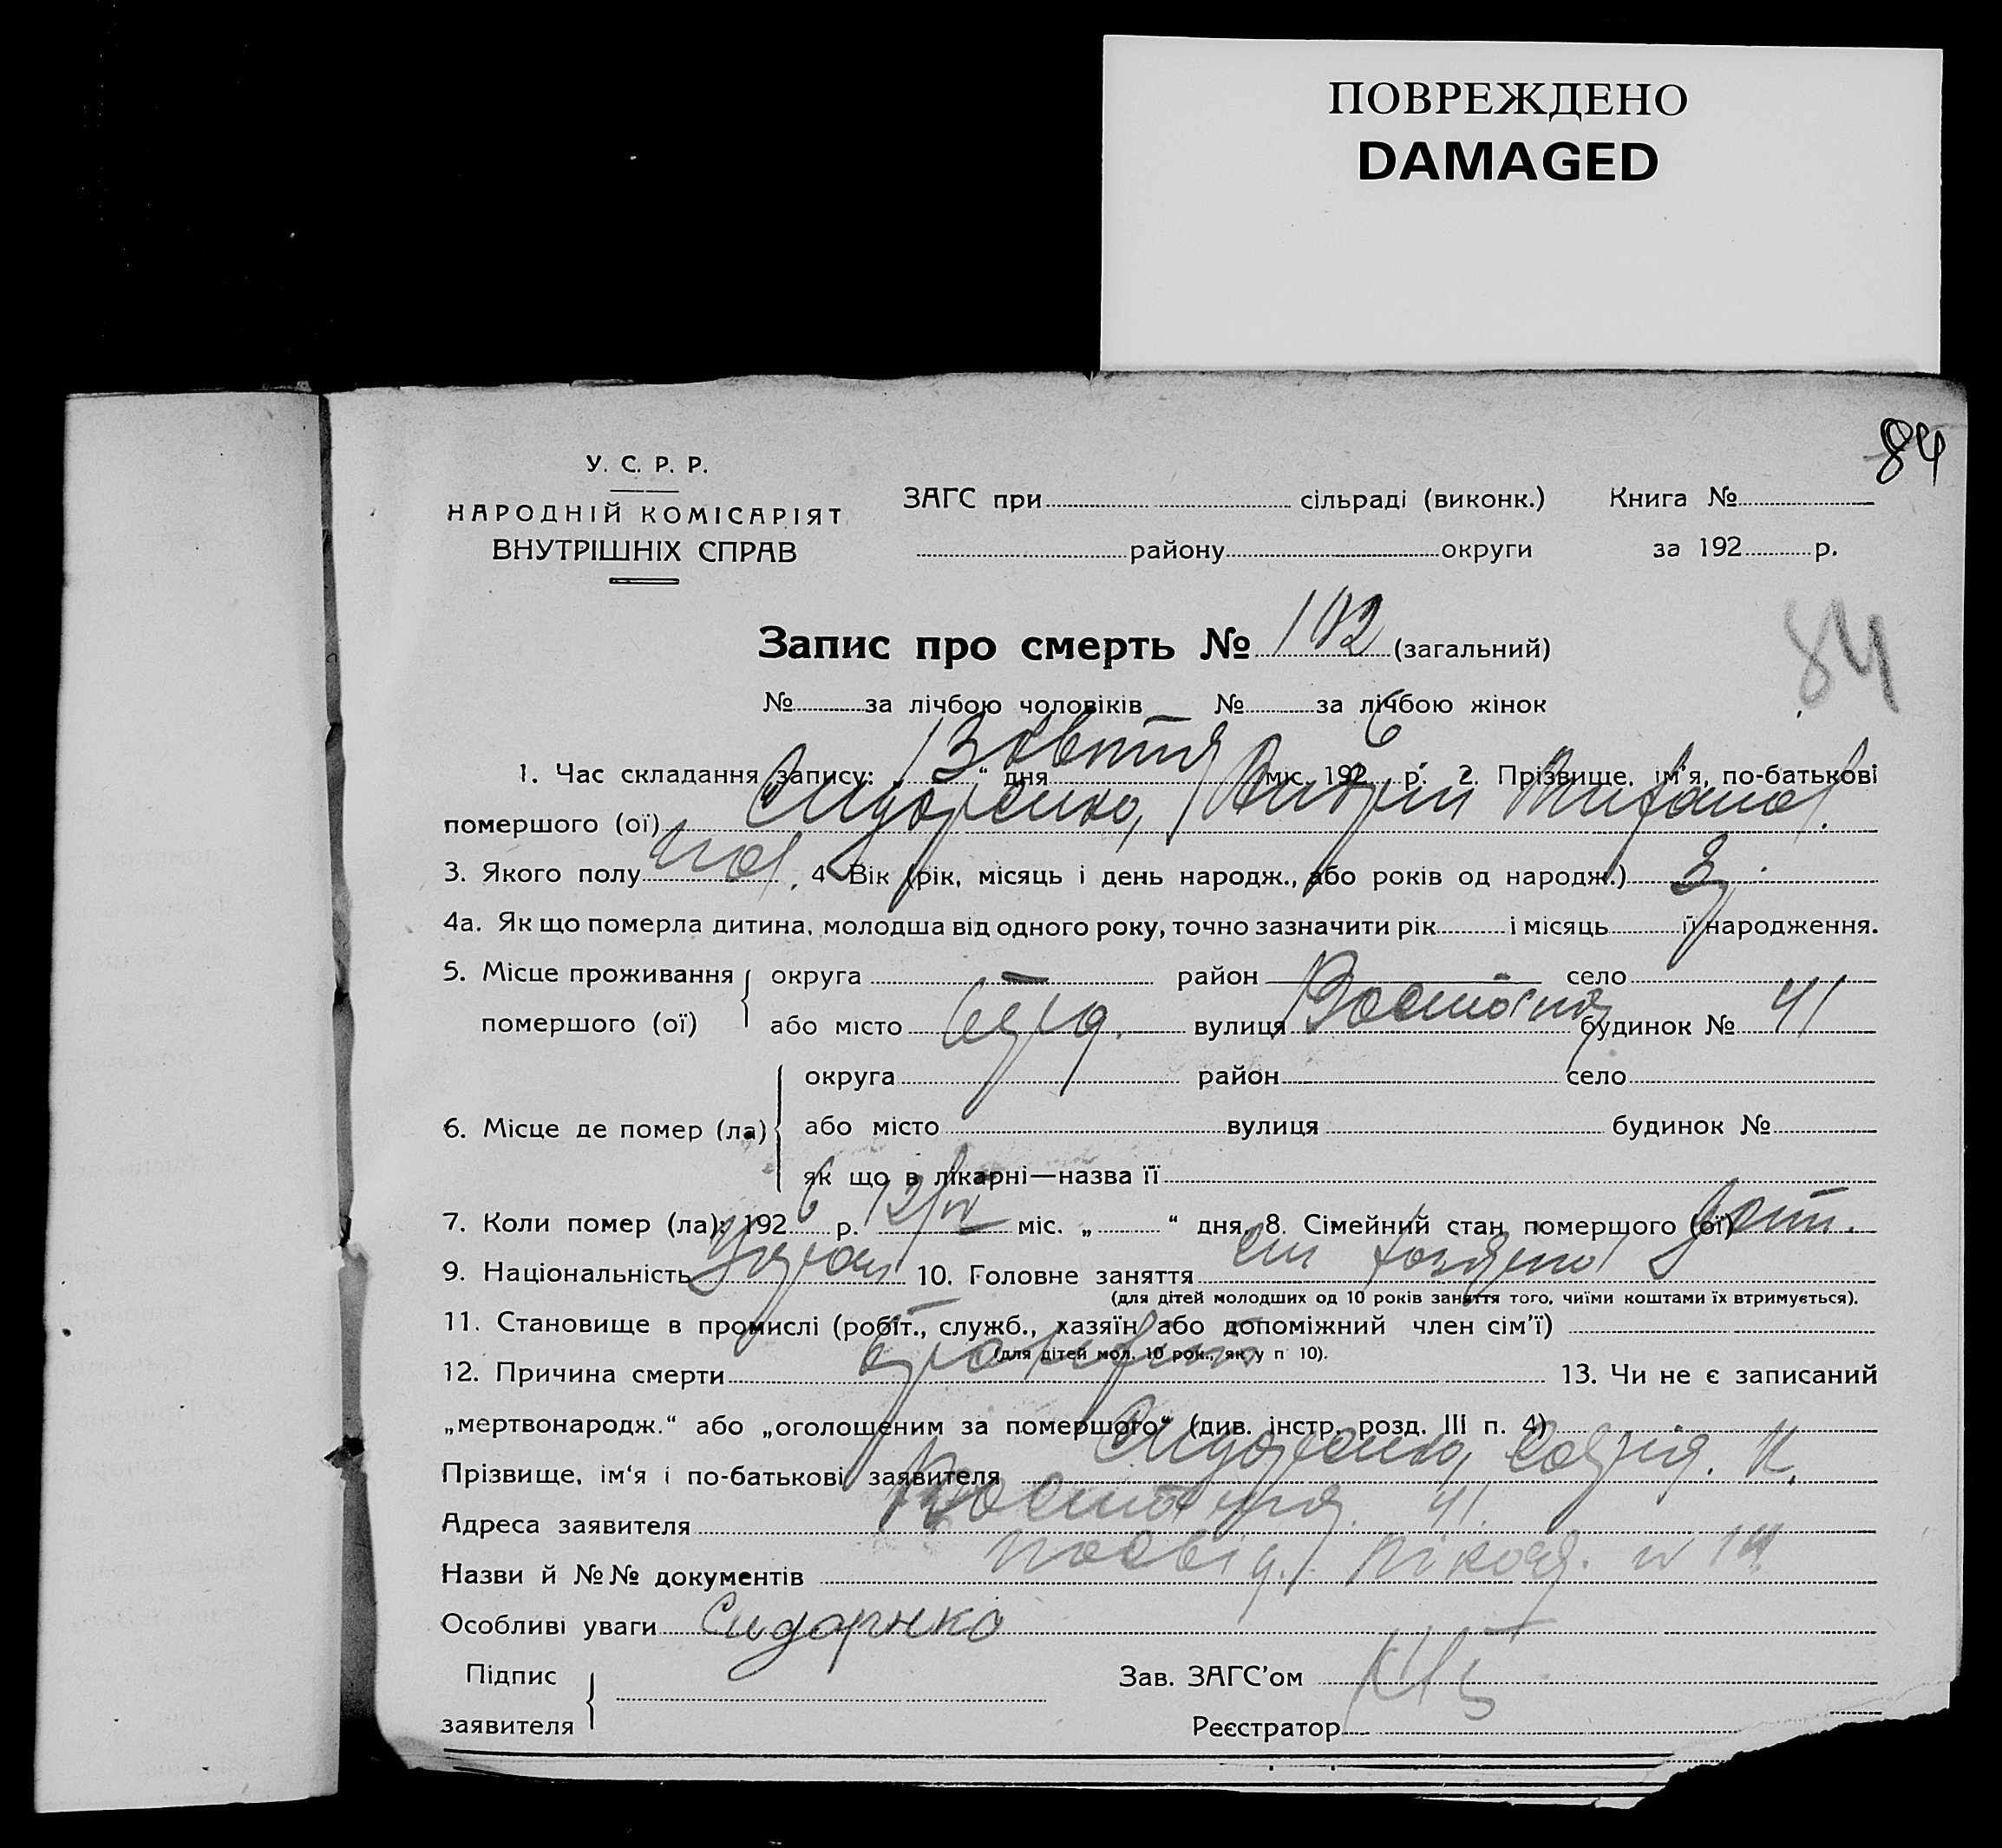 ПОВРЕЖДЕНО
DAMAGED
84
У. С. Р. Р.
НАРОДНІЙ КОМІСАРІЯТ
ВНУТРІШНІХ СПРАВ
ЗАГС при сільраді (виконк.) Книга №
району округи за 192 р.
Запис про смерть № 102 (загальний)
84
№ за лічбою чоловіків № за лічбою жінок
1. Час складання запису: „ 13 “ дня жовтня міс. 1926 р. 2. Прізвище, ім'я, по-батькові
помершого (ої) Сидоренко, Андрій
3. Якого полу чол, 4 Вік (рік, місяць і день народж., або років од народж.) 3
4а. Як що померла дитина, молодша від одного року, точно зазначити рік і місяць її народження.
5. Місце проживання округа район село
помершого (ої) або місто вулиця будинок № 41
округа район село
6. Місце де помер (ла) або місто вулиця будинок №
як що в лікарні—назва її
7. Коли помер (ла): 1926 р. 12/IV міс. „ “ дня, 8. Сімейний стан помершого (ої)
9. Національність 10. Головне заняття
(для дітей молодших од 10 років заняття того, чиїми коштами їх втримується).
11. Становище в промислі (робіт., служб., хазяїн або допоміжний член сім'ї)
(для дітей мол. 10 рок., як у п 10).
12. Причина смерти 13. Чи не є записаний
„мертвонародж.“ або „оголошеним за помершого“ (див. інстр. розд. III п. 4)
Прізвище, ім'я і по-батькові заявителя Сидоренко,
Адреса заявителя 41.
Назви й №№ документів посвід. лікаря. № 14
Особливі уваги Сидорнко
Підпис
заявителя
Зав. ЗАГС'ом
Реєстратор